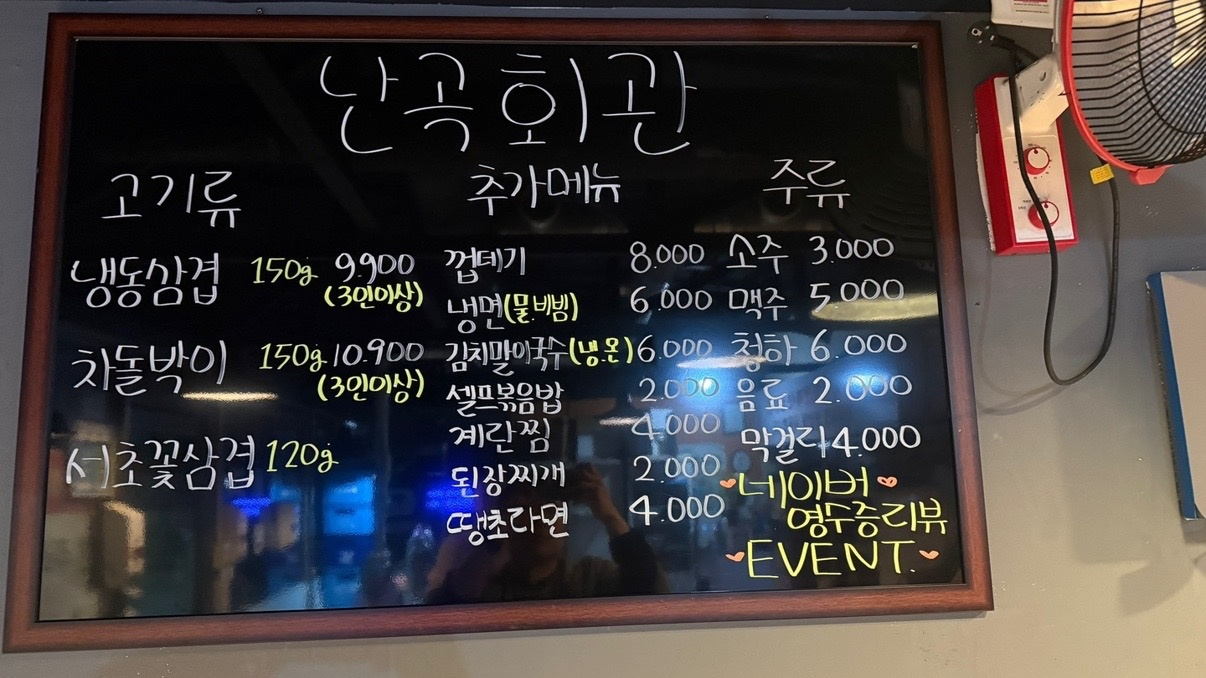 난곡회관
고기류
냉동삼겹 150g 9.900
(3인이상)
차돌박이 150g 10.900
(3인이상)
서초꽃삼겹 120g
추가메뉴
껍데기 8.000
냉면(물.비빔) 6.000
김치말이국수(냉.온) 6.000
셀프볶음밥 2.000
계란찜 4.000
된장찌개 2.000
땡초라면 4.000
주류
소주 3.000
맥주 5.000
청하 6.000
음료 2.000
막걸리 4.000
네이버
영수증리뷰
EVENT.